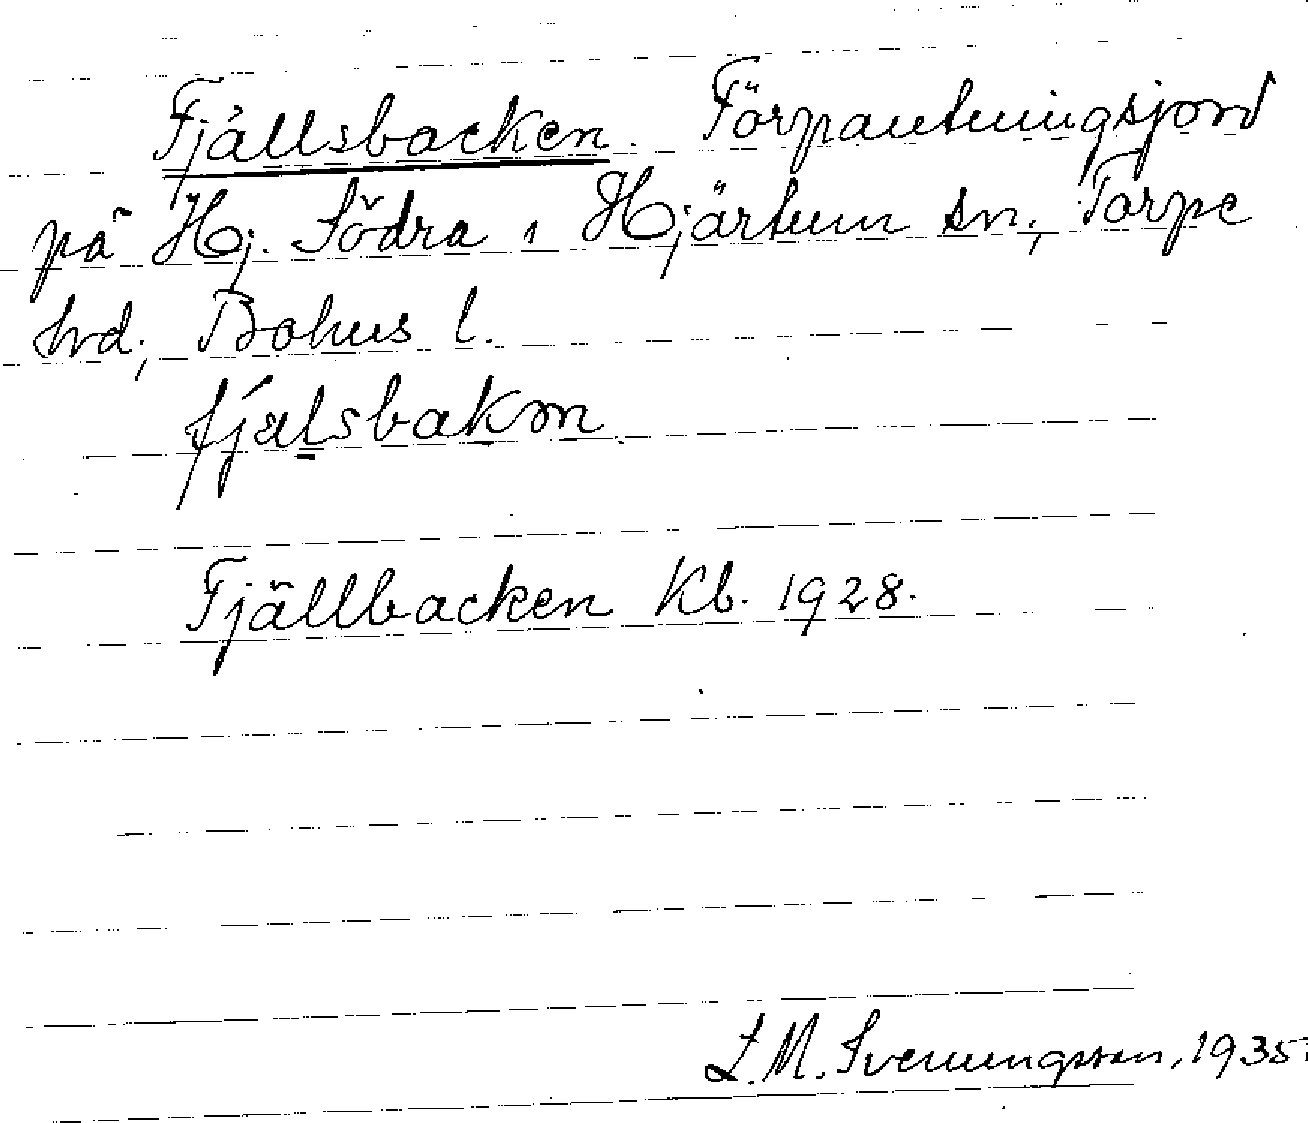 Fjällsbacken. Förpantningsjord
på Hj. Södra i Hjärtum sn, Torpe
hrd, Bohus l.
fjælsbakən
Fjällbacken Kb. 1928.
L.M. Svenungsson, 1935